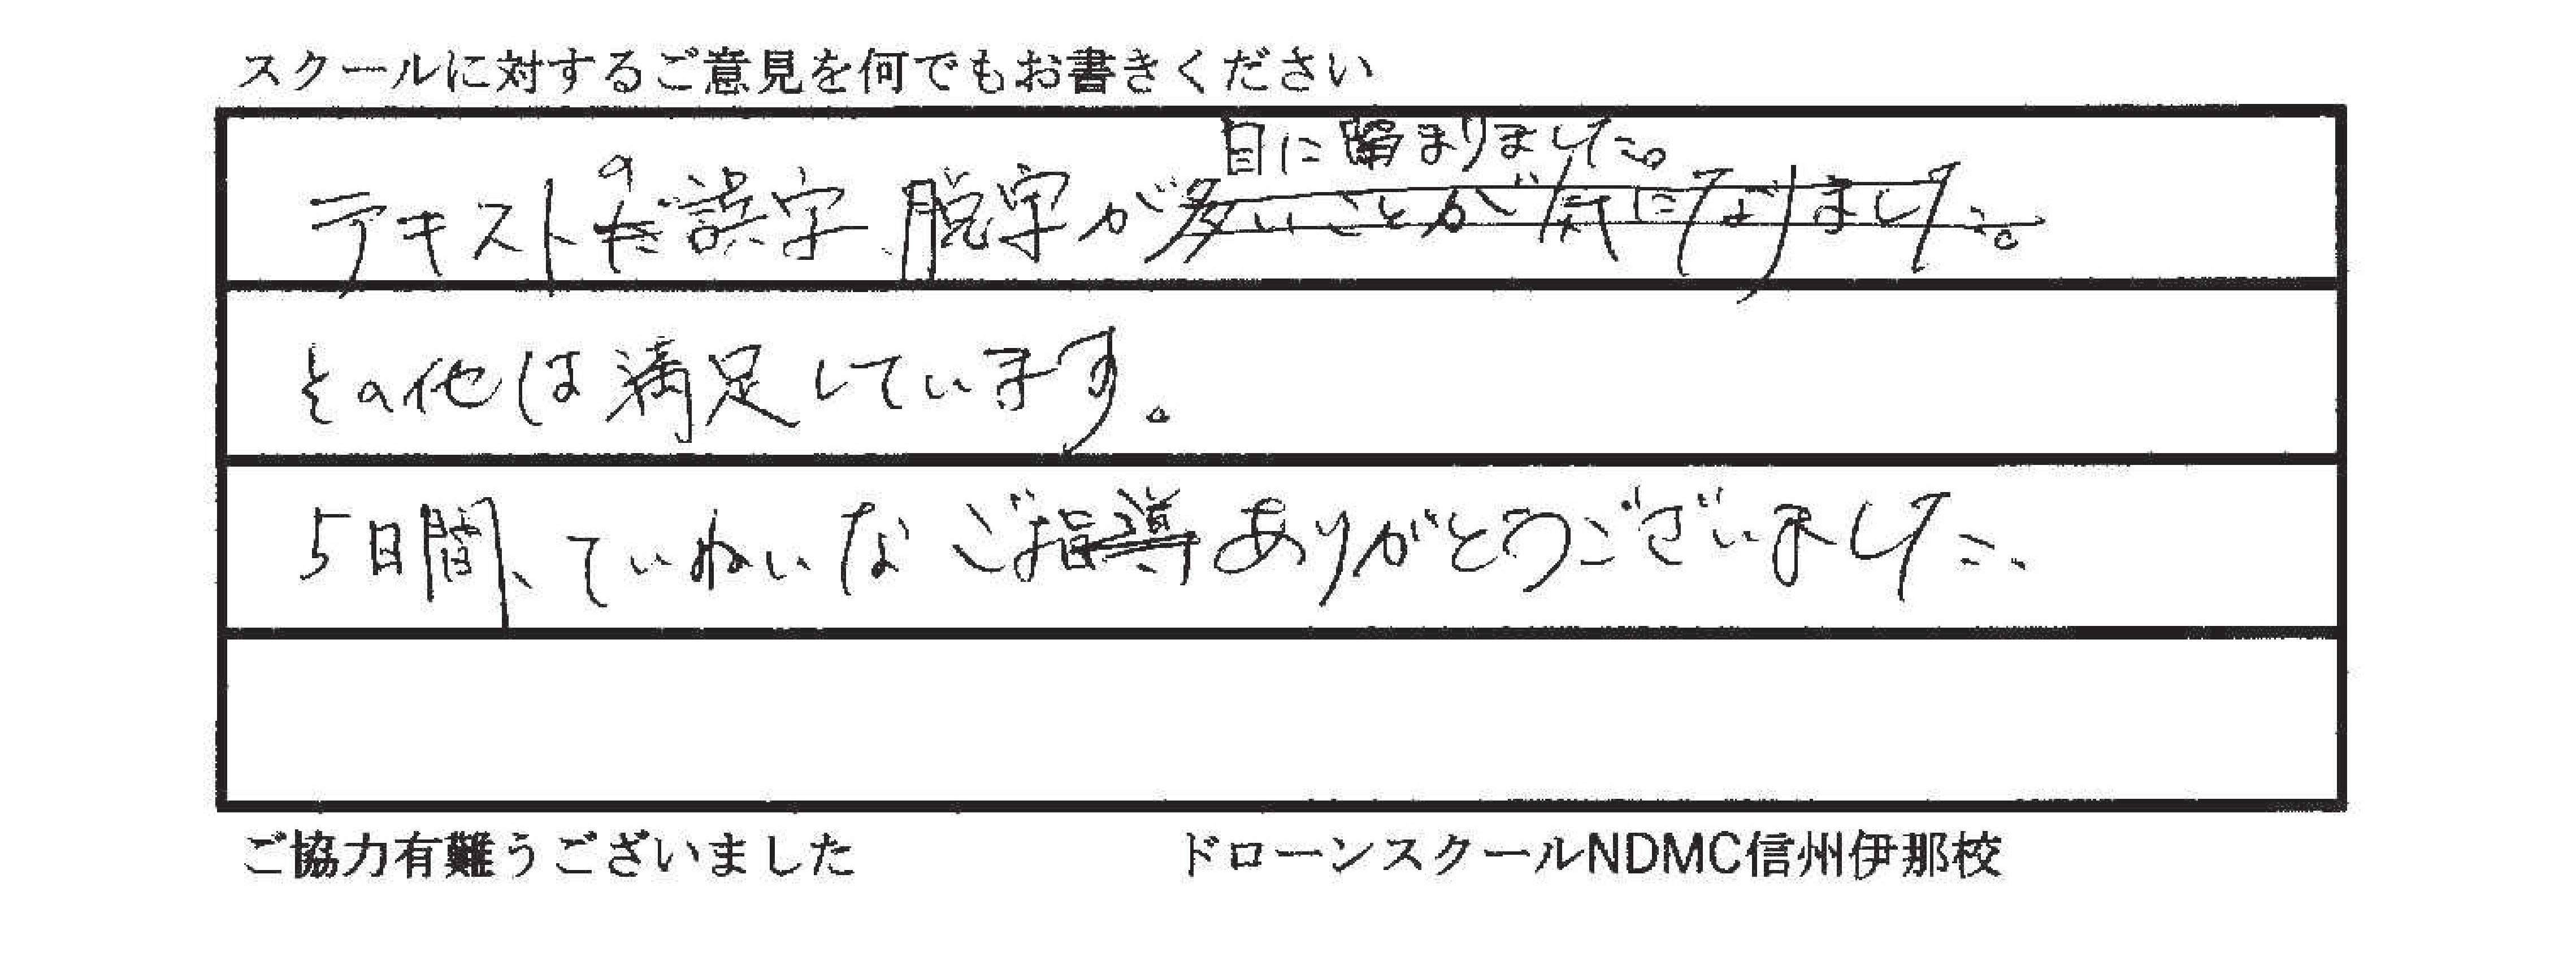 スクールに対するご意見を何でもお書きください
目に留まりました。
テキストの誤字、脱字が多いことが気になりました。
その他は満足しています。
5日間、ていねいなご指導ありがとうございました、
ご協力有難うございました
ドローンスクールNDMC信州伊那校